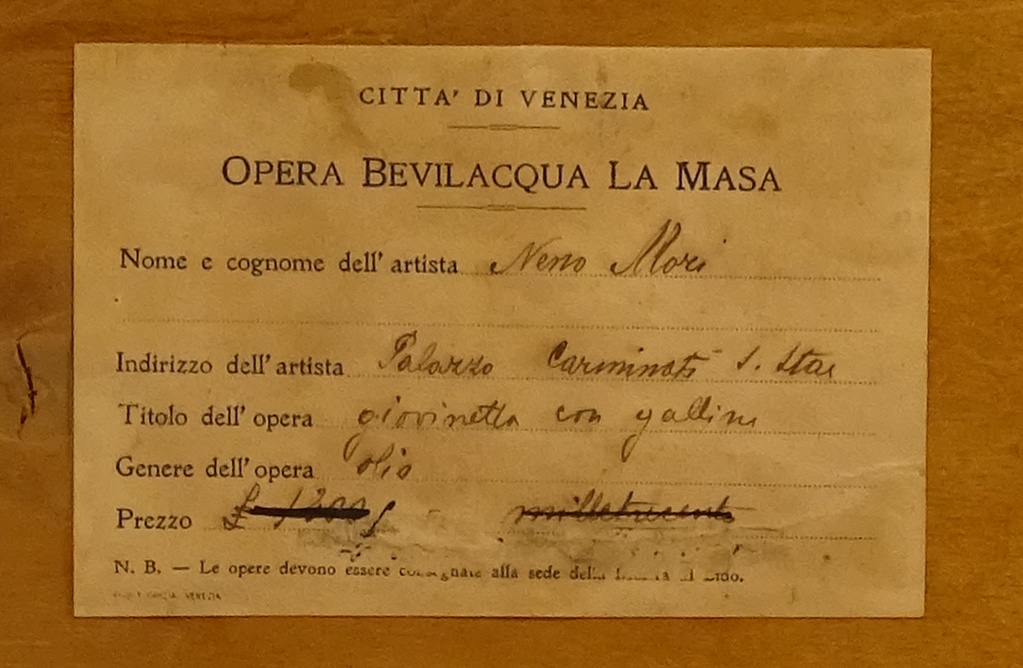 CITTA' DI VENEZIA
OPERA BEVILACQUA LA MASA
Nome e cognome dell' artista Neno Mori
Indirizzo dell' artista Palazzo Carminati S. Stae
Titolo dell' opera giovinetta con galline
Genere dell' opera olio
Prezzo £
N. B. — Le opere devono essere consegnate alla sede della
VENEZIA